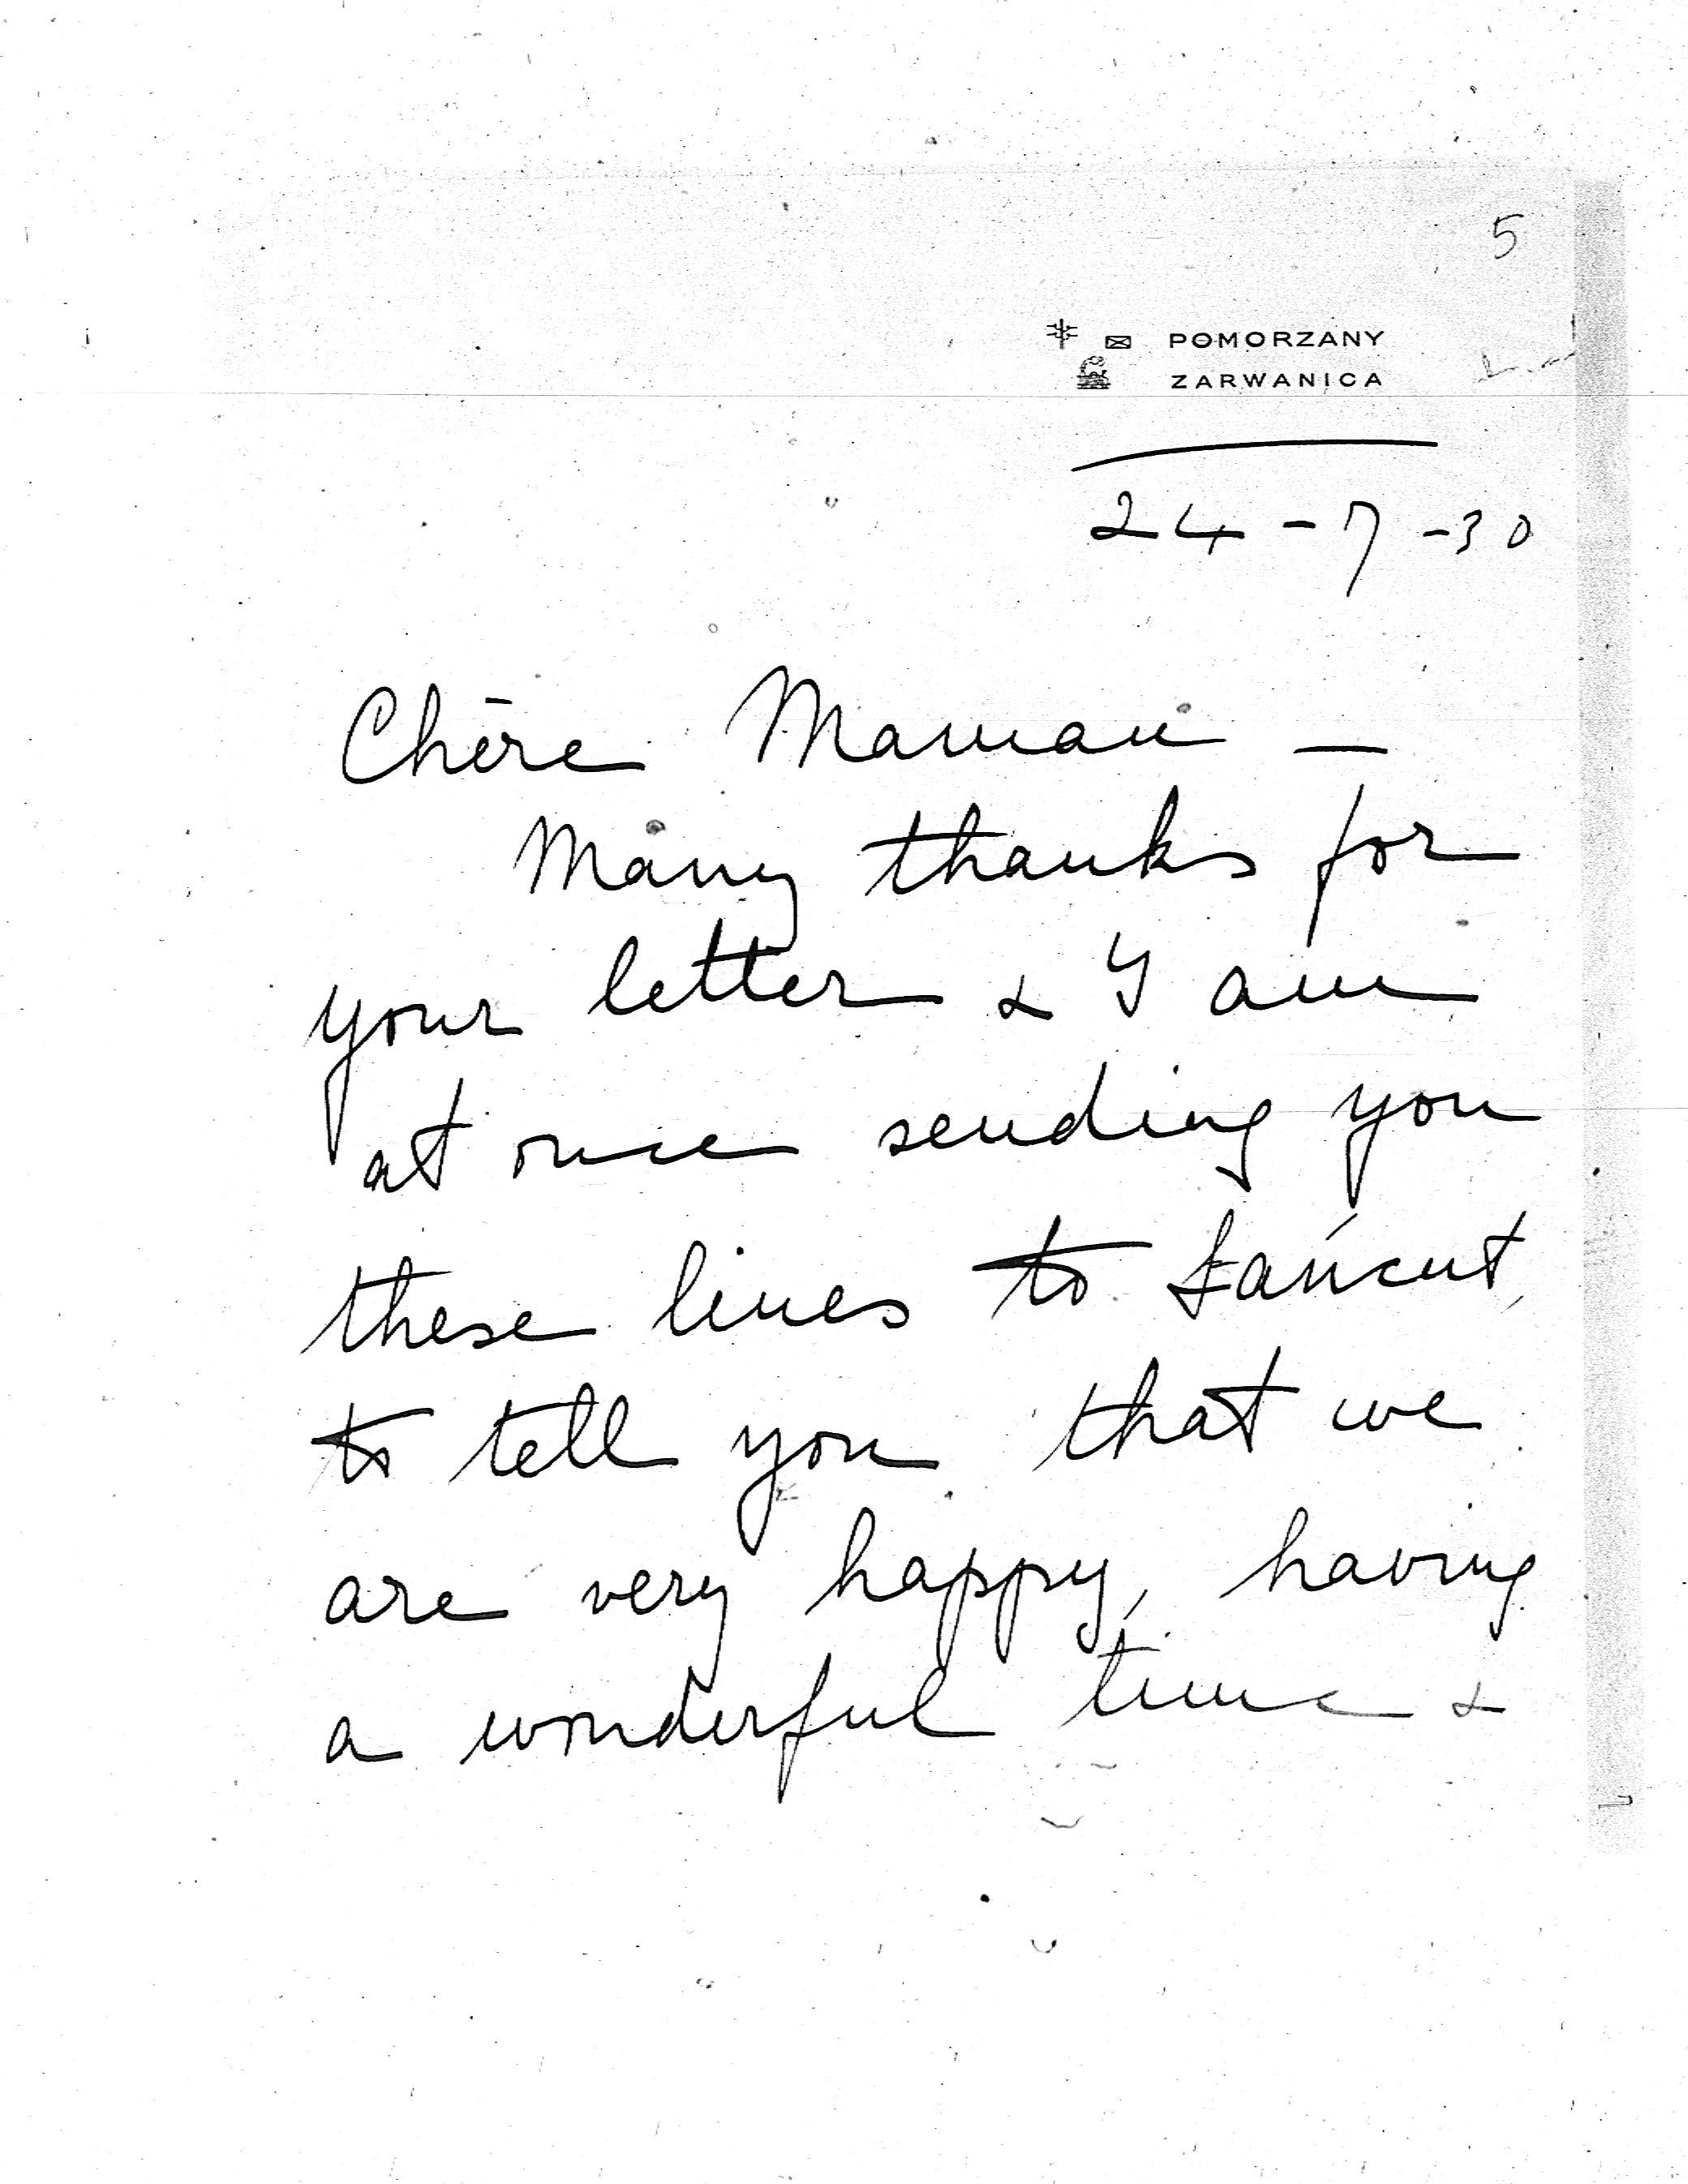 5
POMORZANY
ZARWANICA
24-7-30
Chère Maman —
Many thanks for
your letter & I am
at once sending you
these lines to Łańcut,
to tell you that we
are very happy, having
a wonderful time &